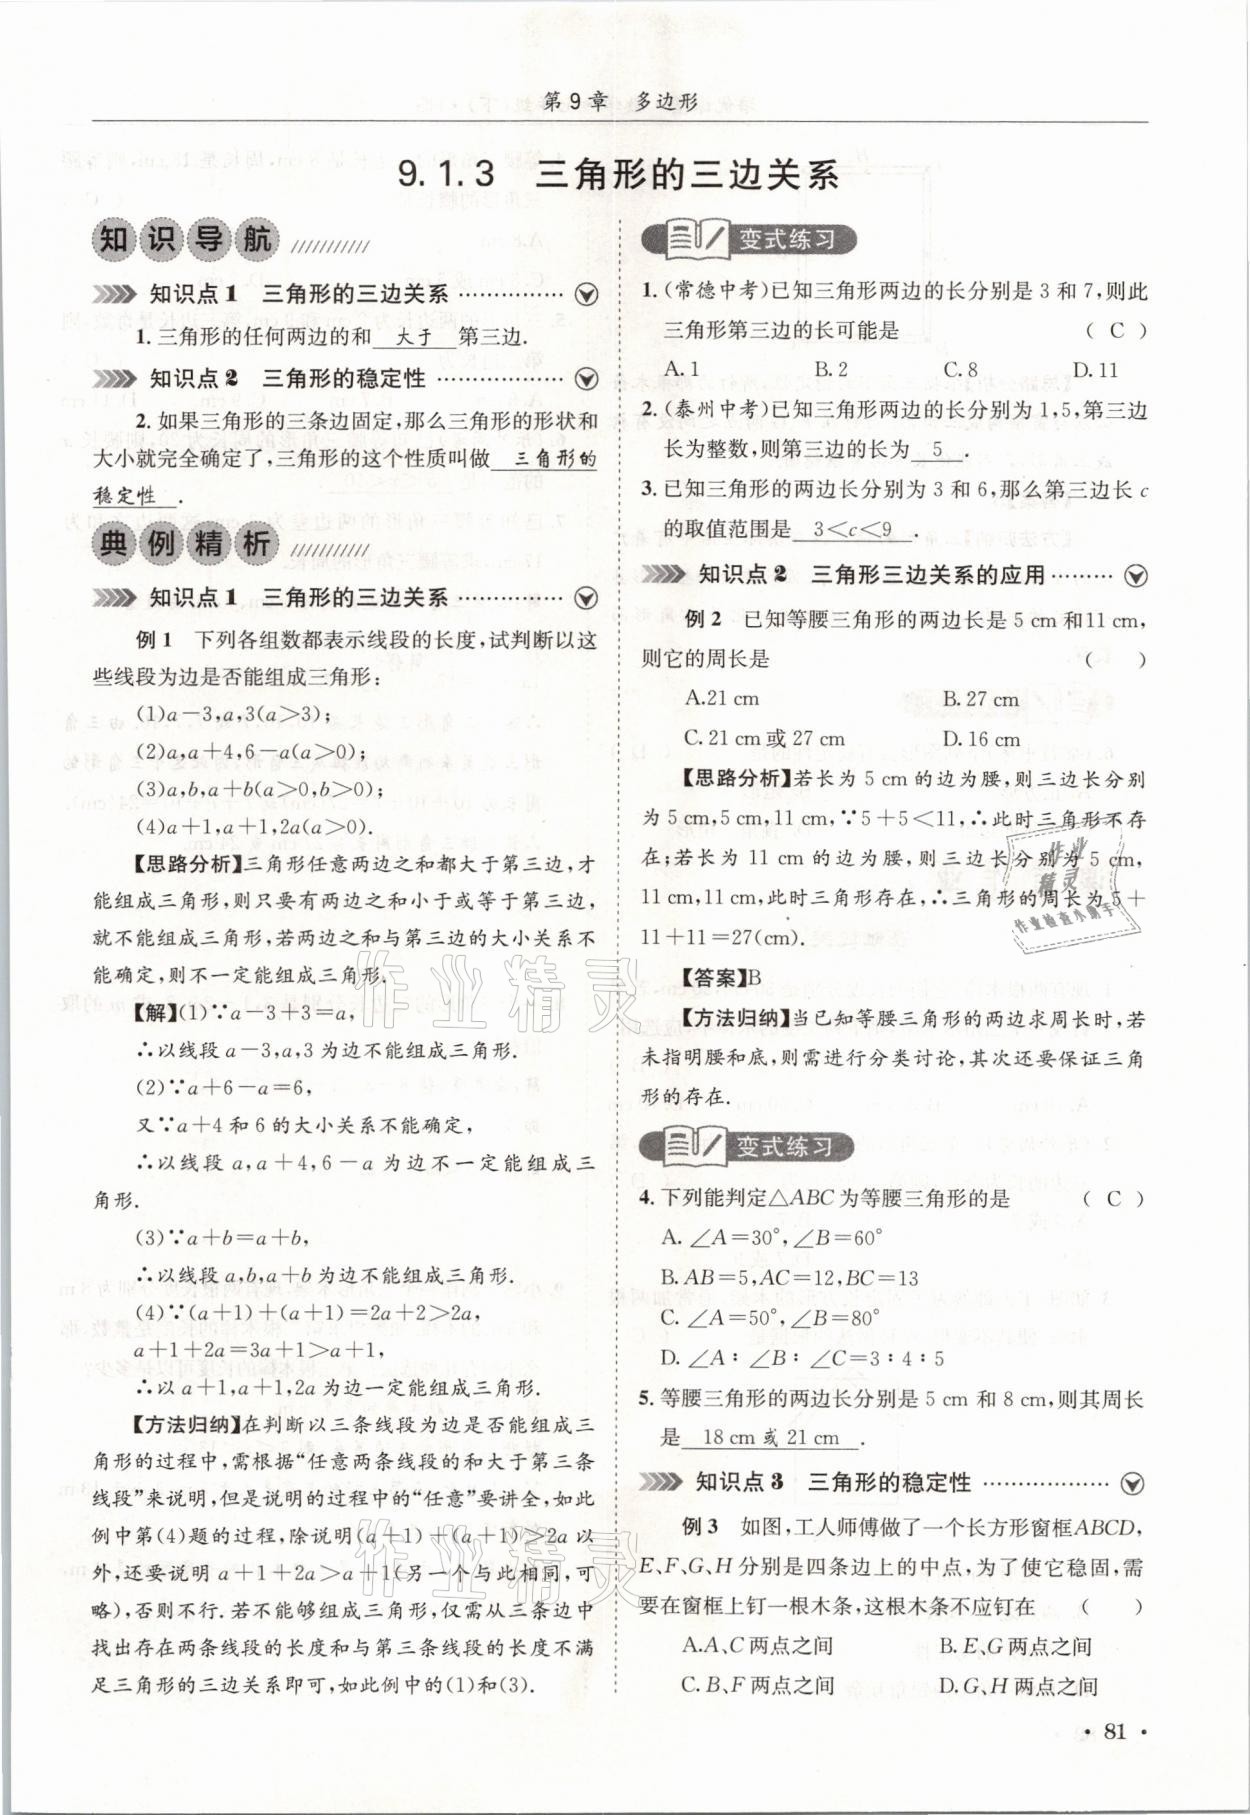 第9章 多边形
9.1.3 三角形的三边关系
知识导航
知识点1 三角形的三边关系
1.三角形的任何两边的和 大于 第三边.
知识点2 三角形的稳定性
2.如果三角形的三条边固定,那么三角形的形状和
大小就完全确定了,三角形的这个性质叫做 三角形的
稳定性 .
典例精析
知识点1 三角形的三边关系
例1 下列各组数都表示线段的长度,试判断以这
些线段为边是否能组成三角形:
(1)a-3,a,3(a>3);
(2)a,a+4,6-a(a>0);
(3)a,b,a+b(a>0,b>0);
(4)a+1,a+1,2a(a>0).
【思路分析】三角形任意两边之和都大于第三边,才
能组成三角形,只要有两边之和小于或等于第三边,
就不能组成三角形,若两边之和与第三边的大小关系不
能确定,则不一定能组成三角形.
【解】(1)∵a-3+3=a,
∴以线段a-3,a,3为边不能组成三角形.
(2)∵a+6-a=6,
又∵a+4和6的大小关系不能确定,
∴以线段a,a+4,6-a为边不一定能组成三
角形.
(3)∵a+b=a+b,
∴以线段a,b,a+b为边不能组成三角形.
(4)∵(a+1)+(a+1)=2a+2>2a,
a+1+2a=3a+1>a+1,
∴以a+1,a+1,2a为边一定能组成三角形.
【方法归纳】在判断以三条线段为边是否能组成三
角形的过程中,需根据“任意两条线段的和大于第三条
线段”来说明,但是说明的过程中的“任意”要讲全,如此
例中第(4)题的过程,除说明(a+1)+(a+1)>2a以
外,还要说明a+1+2a>a+1(另一个与此相同,可
略),否则不行.若不能够组成三角形,仅需从三条边中
找出存在两条线段的长度和与第三条线段的长度不满
足三角形的三边关系即可,如此例中的(1)和(3).
变式练习
1.(常德中考)已知三角形两边的长分别是3和7,则此
三角形第三边的长可能是 ( C )
A.1 B.2 C.8 D.11
2.(泰州中考)已知三角形两边的长分别为1,5,第三边
长为整数,则第三边的长为 5 .
3.已知三角形的两边长分别为3和6,那么第三边长c
的取值范围是 3<c<9 .
知识点2 三角形三边关系的应用
例2 已知等腰三角形的两边长是5 cm和11 cm,
则它的周长是 ( )
A.21 cm B.27 cm
C.21 cm或27 cm D.16 cm
【思路分析】若长为5 cm的边为腰,则三边长分别
为5 cm,5 cm,11 cm,∵5+5<11,∴此时三角形不存
在;若长为11 cm的边为腰,则三边长分别为5 cm,
11 cm,11 cm,此时三角形存在,∴三角形的周长为5+
11+11=27(cm).
【答案】B
【方法归纳】当已知等腰三角形的两边求周长时,若
未指明腰和底,则需进行分类讨论,其次还要保证三角
形的存在.
变式练习
4.下列能判定△ABC为等腰三角形的是 ( C )
A.∠A=30°,∠B=60°
B.AB=5,AC=12,BC=13
C.∠A=50°,∠B=80°
D.∠A∶∠B∶∠C=3∶4∶5
5.等腰三角形的两边长分别是5 cm和8 cm,则其周长
是 18 cm或21 cm .
知识点3 三角形的稳定性
例3 如图,工人师傅做了一个长方形窗框ABCD,
E、F、G、H分别是四条边上的中点,为了使它稳固,需
要在窗框上钉一根木条,这根木条不应钉在 ( )
A.A、C两点之间 B.E、G两点之间
C.B、F两点之间 D.G、H两点之间
• 81 •
作业精灵
作业精灵
作业
精灵
作业检查小助手